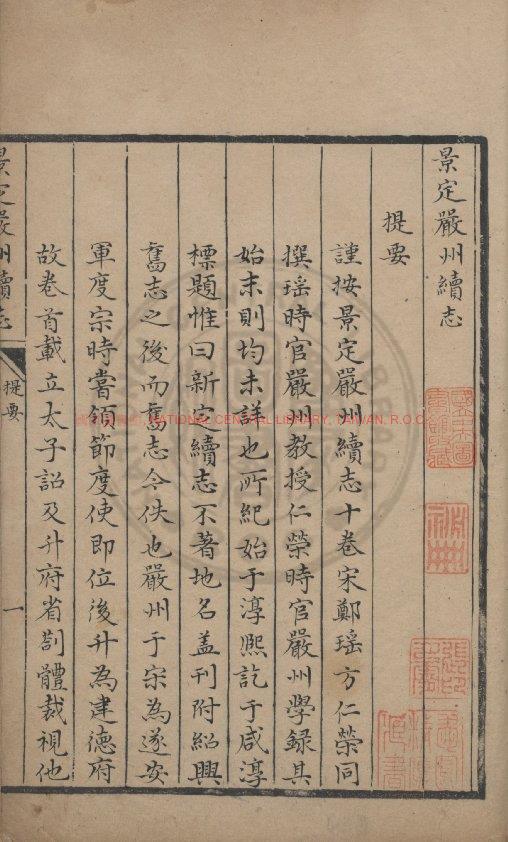 景定嚴州續志
提要
謹按景定嚴州續志十卷宋鄭瑤方仁榮同
撰瑤時官嚴州教授仁榮時官嚴州學録其
始末則均未詳也所紀始于淳熙訖于咸淳
標題惟曰新定續志不著地名盖刊附紹興
舊志之後而舊志今佚也嚴州于宋為遂安
軍度宗時嘗領節度使即位後升為建德府
故卷首載立太子詔及升府省劄體裁視他
景定嚴州續志
提要
一
NATIONAL CENTRAL LIBRARY, TAIWAN, R.O.C.